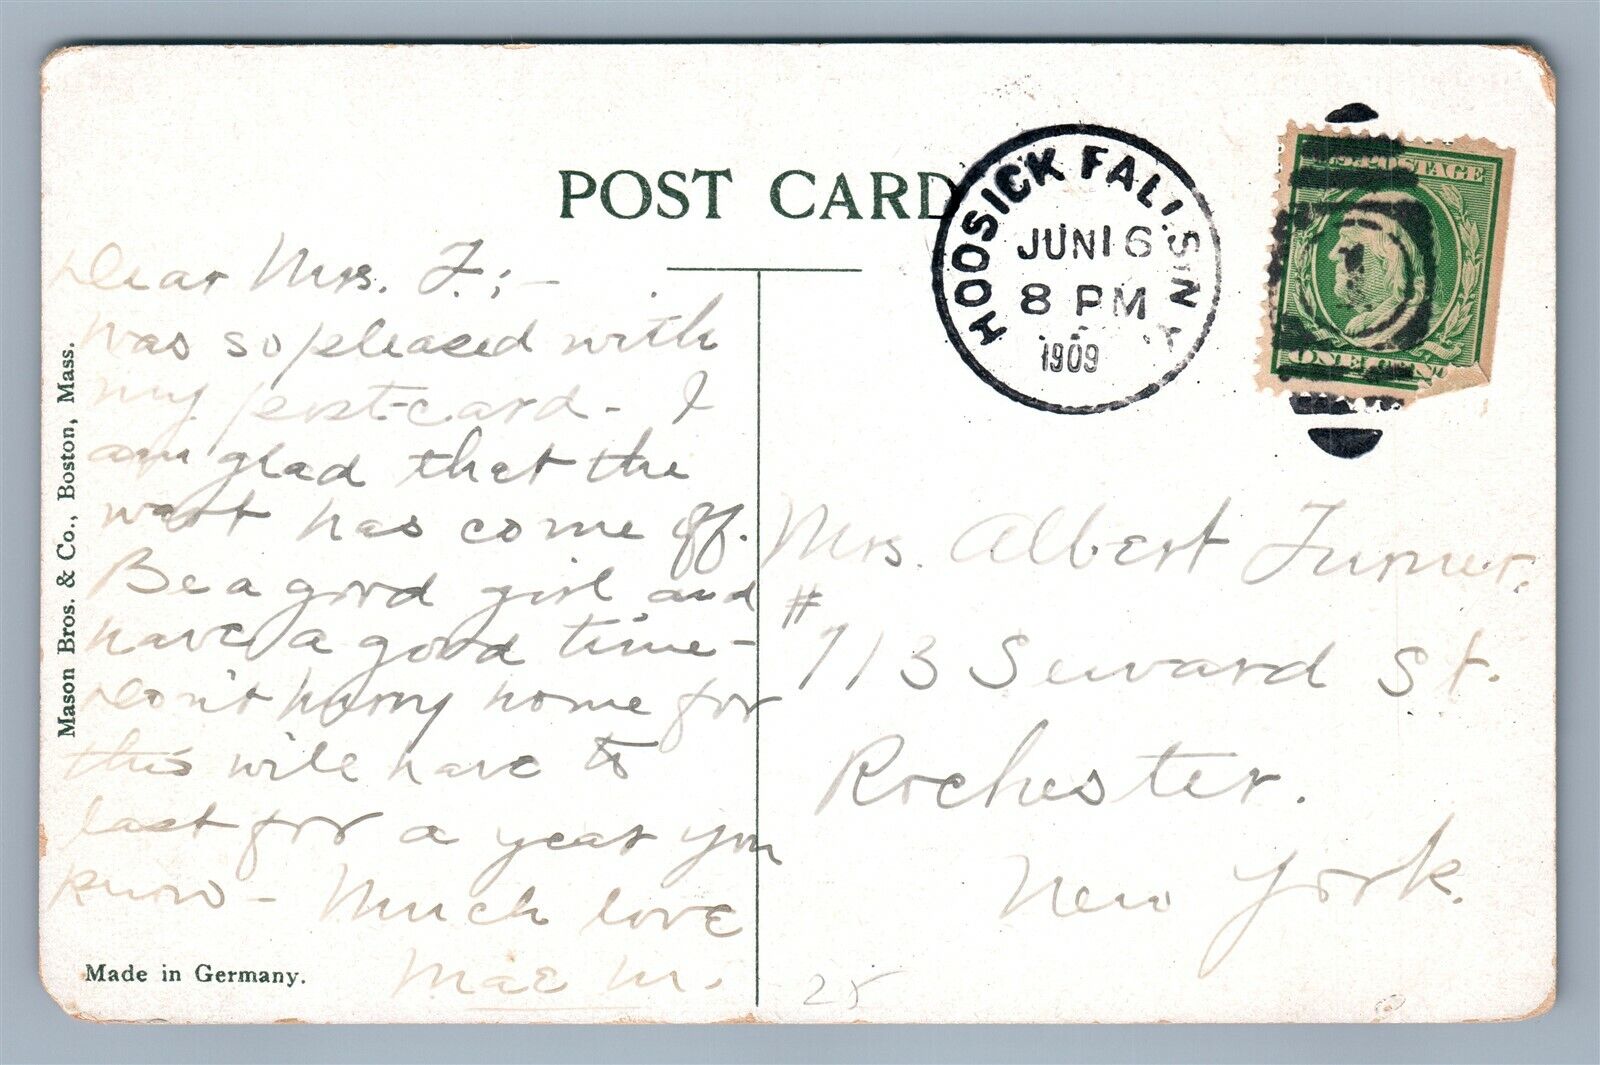 POST CARD
HOOSICK FALLS N Y
JUN 16
8 PM
1909
U.S. POSTAGE
ONE CENT
Dear Mrs. F.;-
was so pleased with
my post-card - I
am glad that the
wart has come off.
Be a good girl and
have a good time -
Don't hurry home for
this will have to
last for a year you
know - Much love
Mae M.
Mrs. Albert Turner.
# 713 Seward St.
Rochester.
New York.
Mason Bros. & Co., Boston, Mass.
Made in Germany.
25